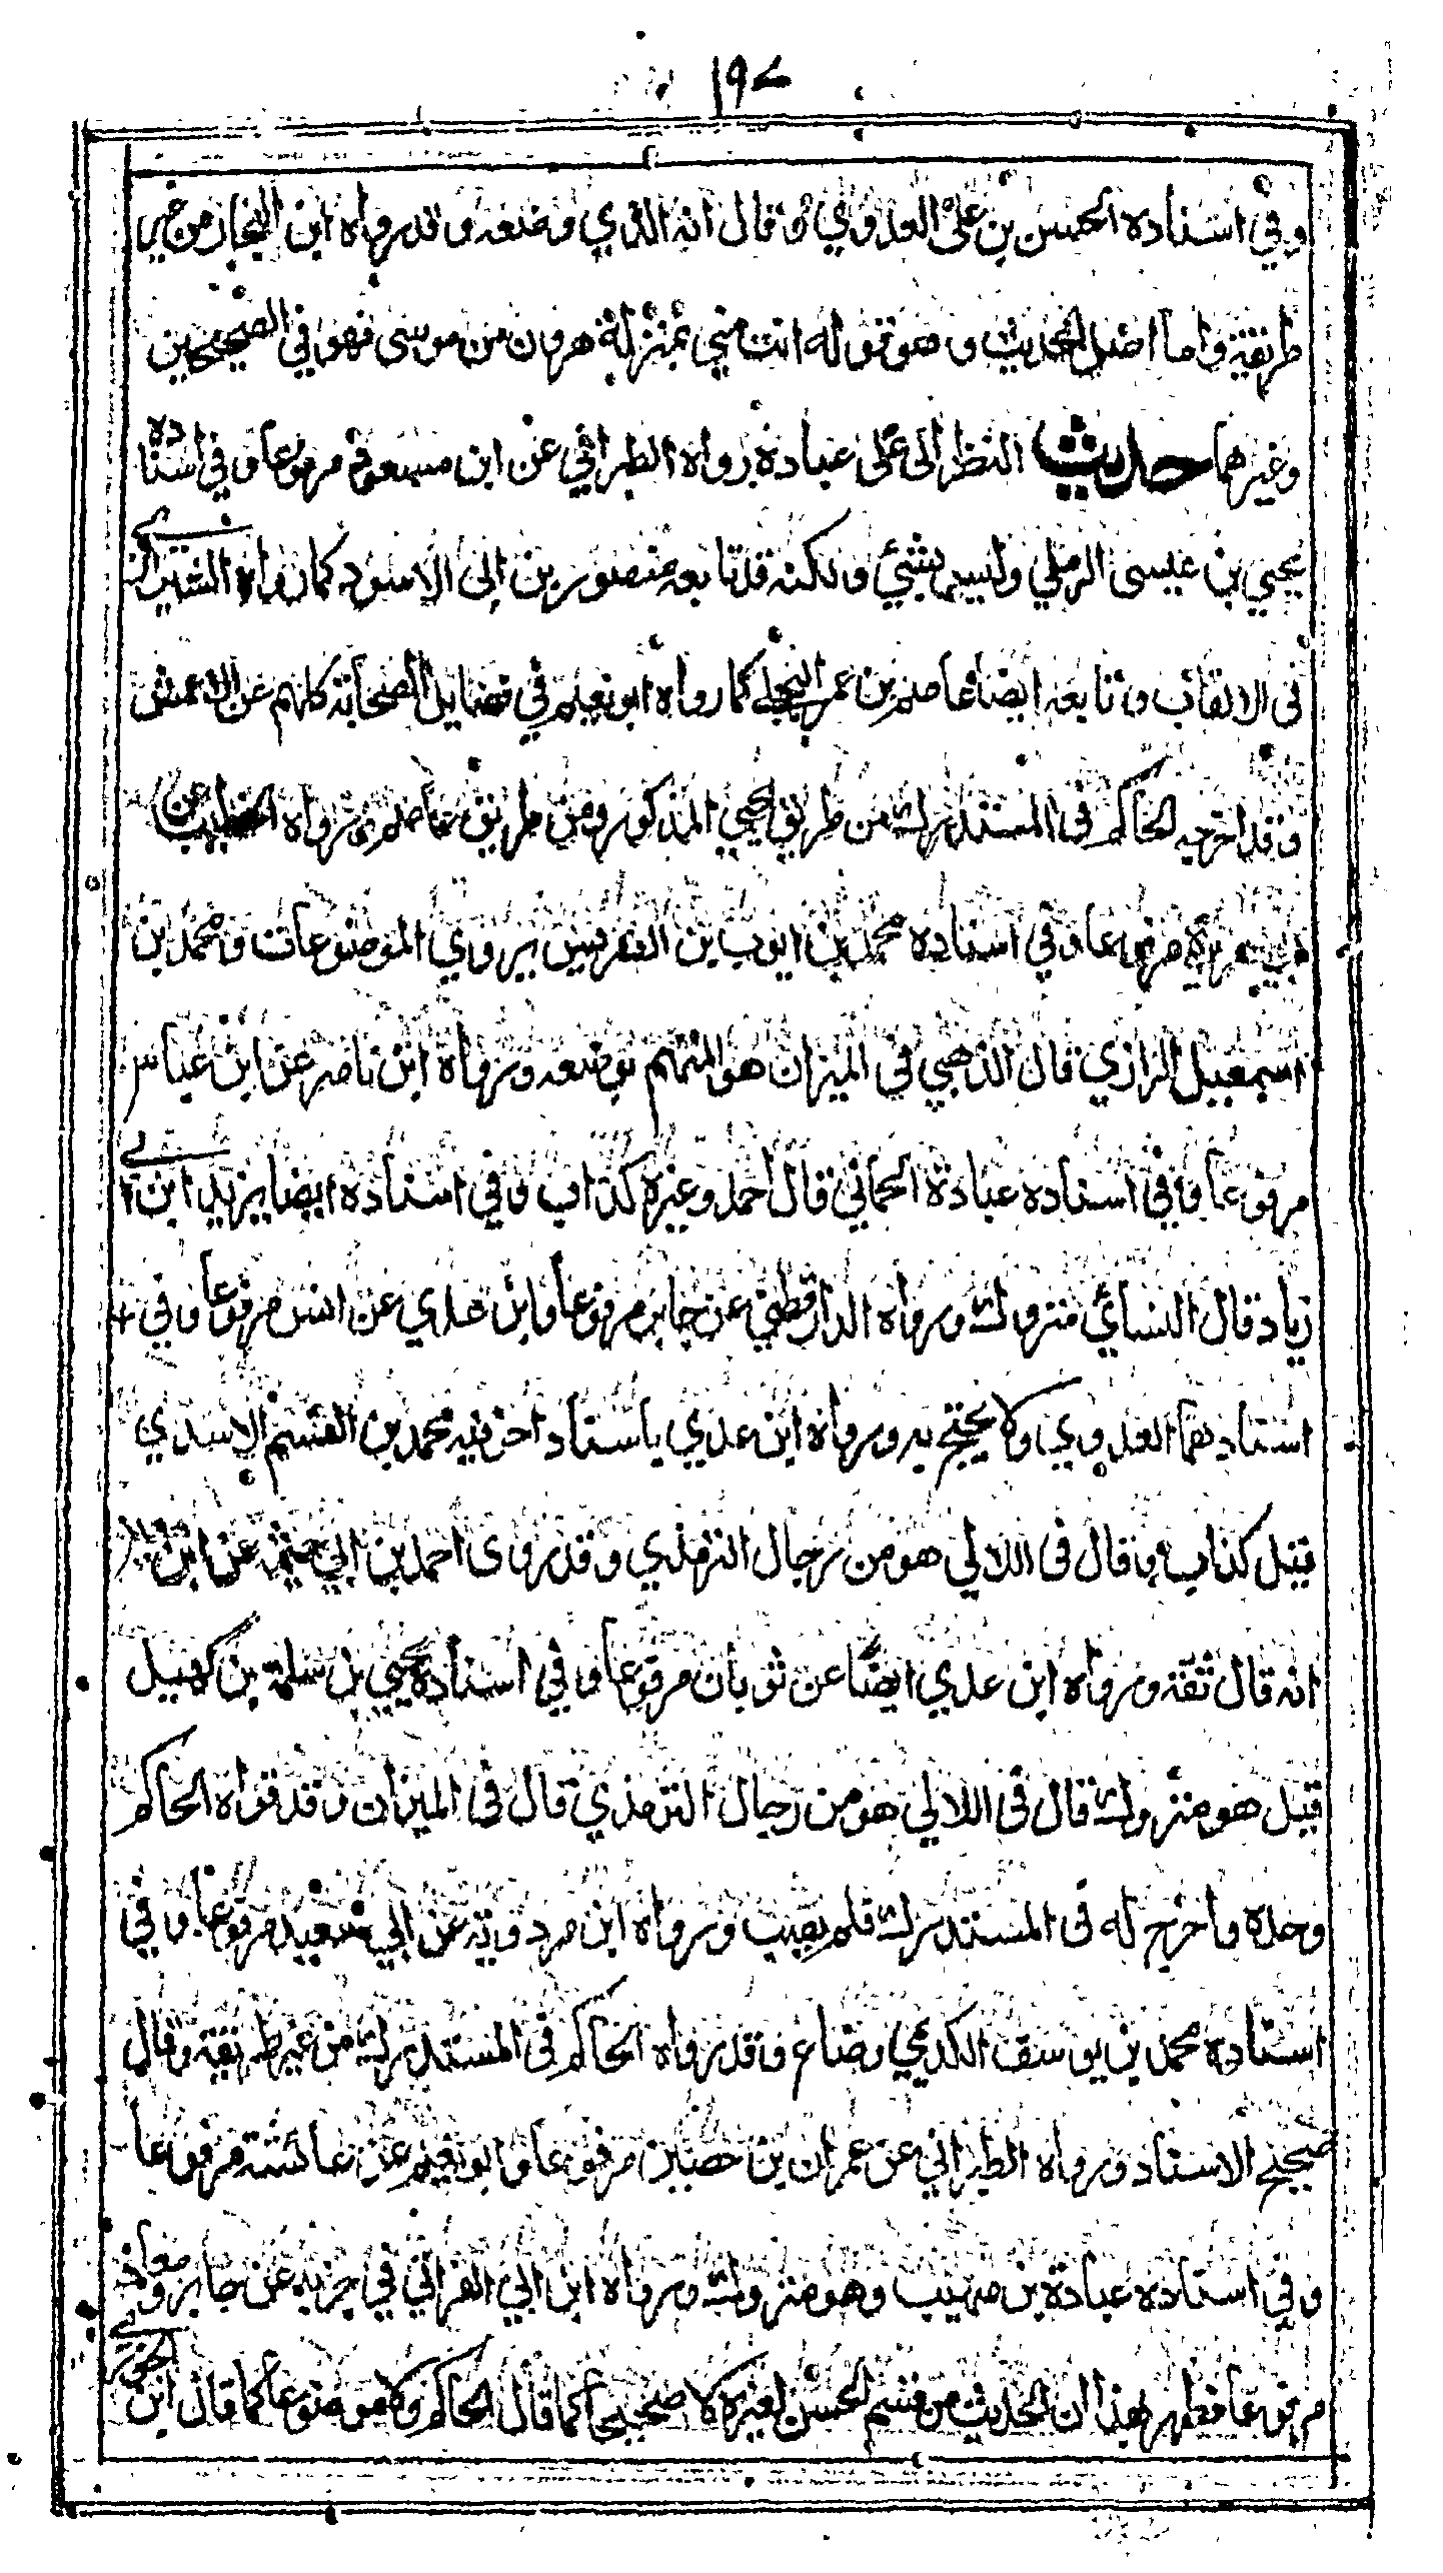 ١٩٧
وفي اسناده الحسن بن على العدوي و قال انه الذي وضعه وقد رواه ابن النجار من خير
طريقه واما اصل الحديث وهو قوله انت مني بمنزلة هرون من موسى فهو في الصحيحين
وغيرهما حديث النظر الى على عبادة رواه الطبراني عن ابن مسعود مرفوعا وفي اسناده
يحيي بن عيسى الرملي وليس بشئي ولكنه قد تابعه منصور بن ابى الاسود كما رواه الشيرازي
فى الالقاب وتابعه ايضا عاصم بن عمر البجلي كما رواه ابو نعيم في فضايل الصحابة كلهم عن الاعمش
وقد اخرجه الحاكم فى المستدرك من طريق يحيي المذكور ومن طريق عاصم ورواه الخطيب عن
ابي هريرة مرفوعا وفي اسناده محمد بن ايوب بن الضريس يروي الموضوعات ومحمد بن
اسمعيل الرازي قال الذهبي في الميزان هو المتهم بوضعه ورواه ابن ناصر عن ابن عباس
مرفوعا وفي اسناده عبادة الحماني قال احمد وغيره كذاب وفي اسناده ايضا يزيد ابن ابي
زياد قال النسائي متروك ورواه الدارقطني عن جابر مرفوعا وابن عدي عن انس مرفوعا وفي
اسنادهما العدوي ولا يحتج به ورواه ابن عدي باسناد اخر فيه محمد بن القسم الاسدي
قيل كذاب وقال فى اللالي هو من رجال الترمذي وقد روى احمد بن ابي خيثمة عن ابن معين
انه قال ثقة ورواه ابن عدي ايضا عن ثوبان مرفوعا وفي اسناده يحيي بن سلمة بن كهيل
قيل هو متروك قال فى اللالي هو من رجال الترمذي قال فى الميزان وقد قواه الحاكم
وحده واخرج له فى المستدرك فلم يصب ورواه ابن مردويه عن ابي سعيد مرفوعا وفي
اسناده محمد بن يوسف الكديمي وضاع وقد رواه الحاكم فى المستدرك من غير طريقه وقال
صحيح الاسناد ورواه الطبراني عن عمران بن حصين مرفوعا وابو نعيم عن عائشة مرفوعا
وفي اسناده عبادة بن صهيب وهو متروك ورواه ابن ابي الفراتي في جزيه عن جابر ومعاذ
مرفوعا فظهر بهذا ان الحديث من قسم الحسن لغيره لا صحيحا كما قال الحاكم ولا موضوعا كما قال ابن الجوزي